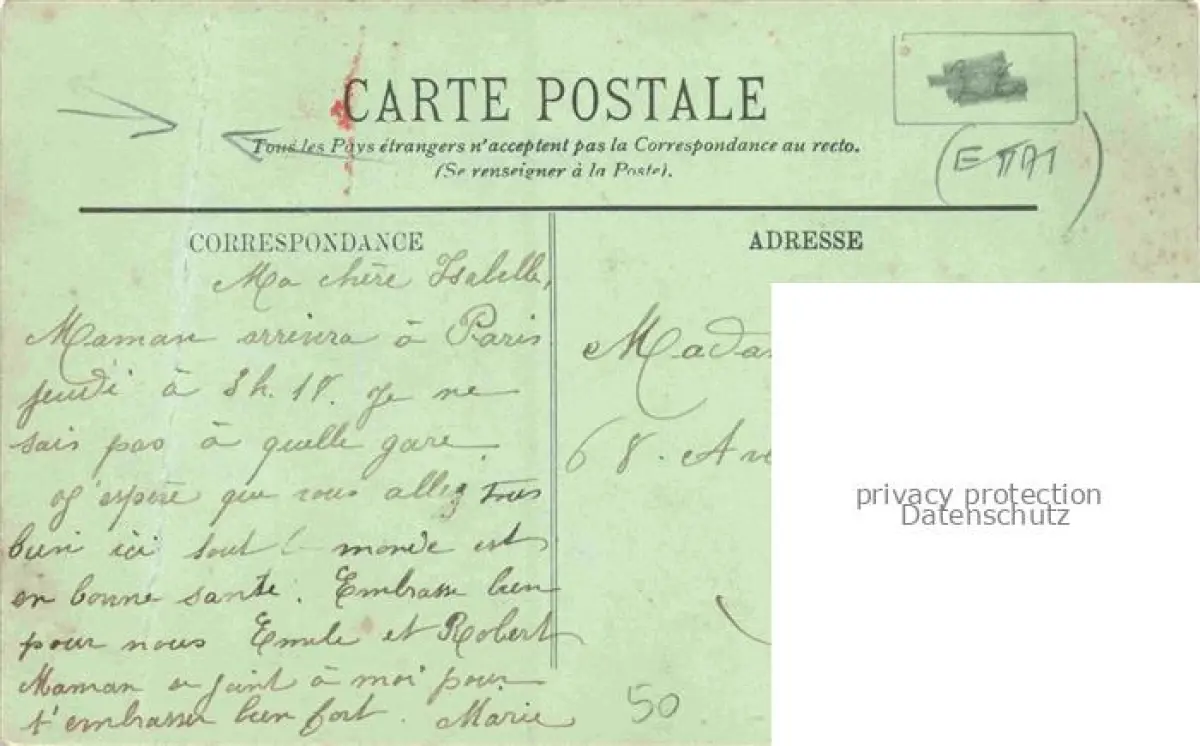 CARTE POSTALE
Tous les Pays étrangers n'acceptent pas la Correspondance au recto.
(Se renseigner à la Poste).
(ETAT
)
CORRESPONDANCE
ADRESSE
Ma chère Isabelle,
Maman arrivera à Paris
jeudi à 3h.18. Je ne
sais pas à quelle gare.
J'espère que vous allez tous
bien ici tout l monde est
en bonne santé. Embrasse bien
pour nous Emile et Robert
Maman se joint à moi pour
t'embrasser bien fort. Marie
Mada
68. Av
50
privacy protection
Datenschutz